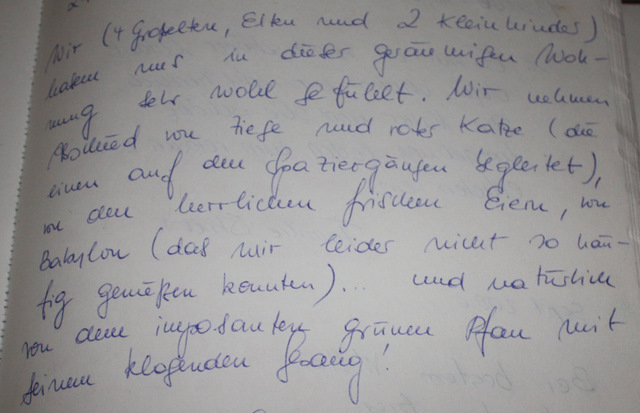 Wir (4 Großeltern, Eltern und 2 Kleinkinder)
haben uns in dieser geräumigen Woh-
nung sehr wohl gefühlt. Wir nehmen
Abschied von Ziege und roter Katze (die
einen auf den Spaziergängen begleitet),
von den herrlichen frischen Eiern, von
Babylon (das wir leider nicht so häu-
fig genießen konnten)... und natürlich
von dem imposanten grünen Pfau mit
seinem klagenden Gesang!